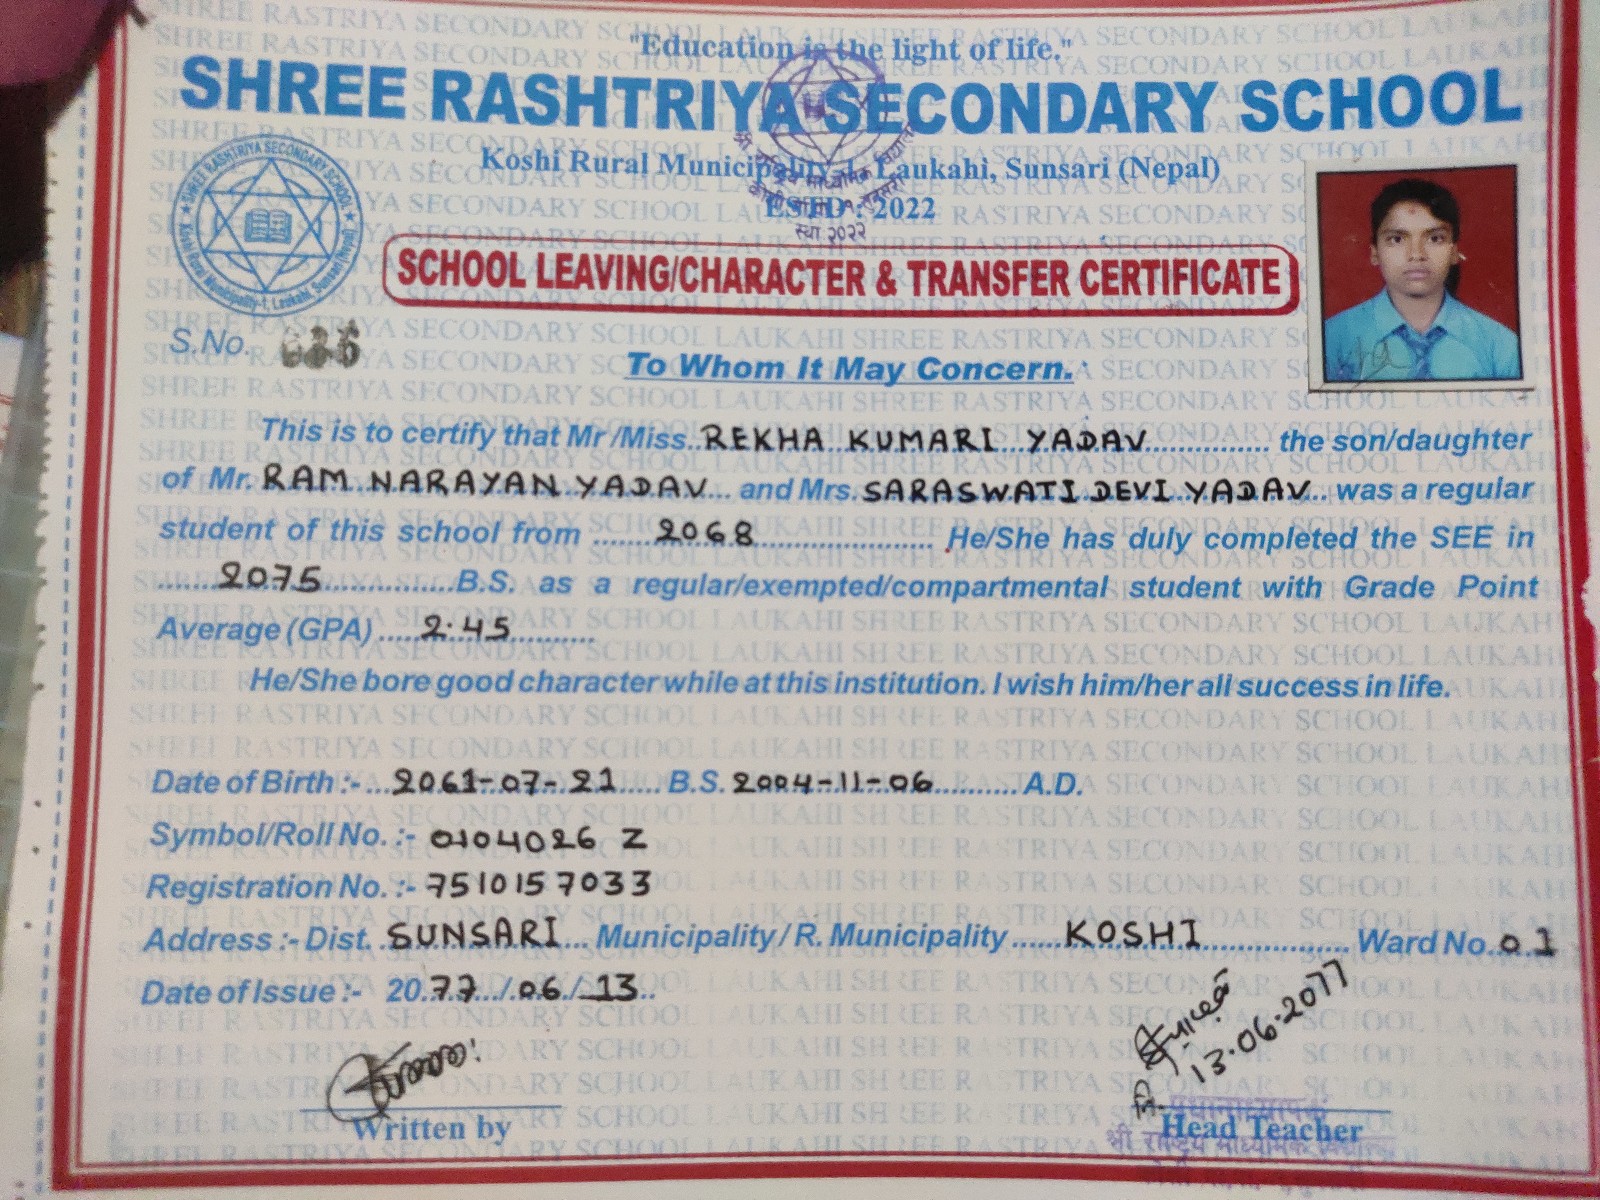 "Education is the light of life."
SHREE RASHTRIYA SECONDARY SCHOOL
Koshi Rural Municipality-1, Laukahi, Sunsari (Nepal)
ESTD : 2022
स्था २०२२
SHREE RASHTRIYA SECONDARY SCHOOL
Koshi Rural Municipality-1, Laukahi, Sunsari (Nepal)
SCHOOL LEAVING/CHARACTER & TRANSFER CERTIFICATE
S.No.
To Whom It May Concern.
This is to certify that Mr/Miss. REKHA KUMARI YADAV the son/daughter
of Mr. RAM NARAYAN YADAV and Mrs. SARASWATI DEVI YADAV was a regular
student of this school from 2068 He/She has duly completed the SEE in
2075 B.S. as a regular/exempted/compartmental student with Grade Point
Average (GPA) 2.45
He/She bore good character while at this institution. I wish him/her all success in life.
Date of Birth :- 2061-07-21 B.S. 2004-11-06 A.D.
Symbol/Roll No. :- 0104026 Z
Registration No. :- 7510157033
Address :- Dist. SUNSARI Municipality/R. Municipality KOSHI Ward No. 01
Date of Issue :- 2077/06/13
13.06.2077
Written by
प्रधानाध्यापक
Head Teacher
श्री राष्ट्रिय माध्यमिक विद्यालय